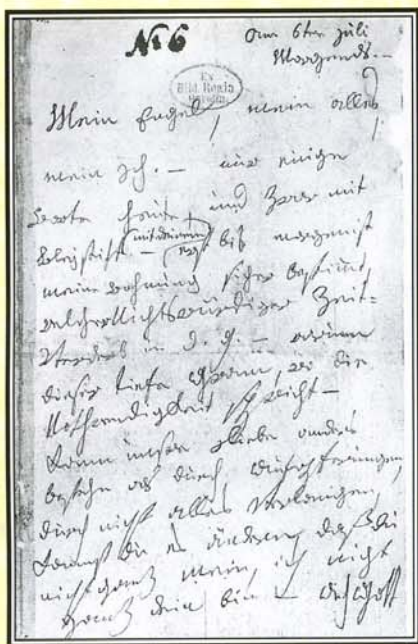 № 6
am 6ten Juli
Morgends. –
Ex
Bibl. Regia
Berolin.
Mein Engel, mein alles,
mein Ich. – nur einige
Worte heute, und zwar mit
Bleystift – (mit deinem) erst bis morgen ist
meine wohnung sicher bestimmt,
welcher Nichtswürdiger Zeit-
verderb in d. g. – warum
dieser tiefe Gram, wo die
Nothwendigkeit spricht –
Kann unsre Liebe anders
bestehn als durch Aufopferungen,
durch nicht alles verlangen,
kannst du es ändern, daß du
nicht ganz mein, ich nicht
ganz dein bin – Ach Gott